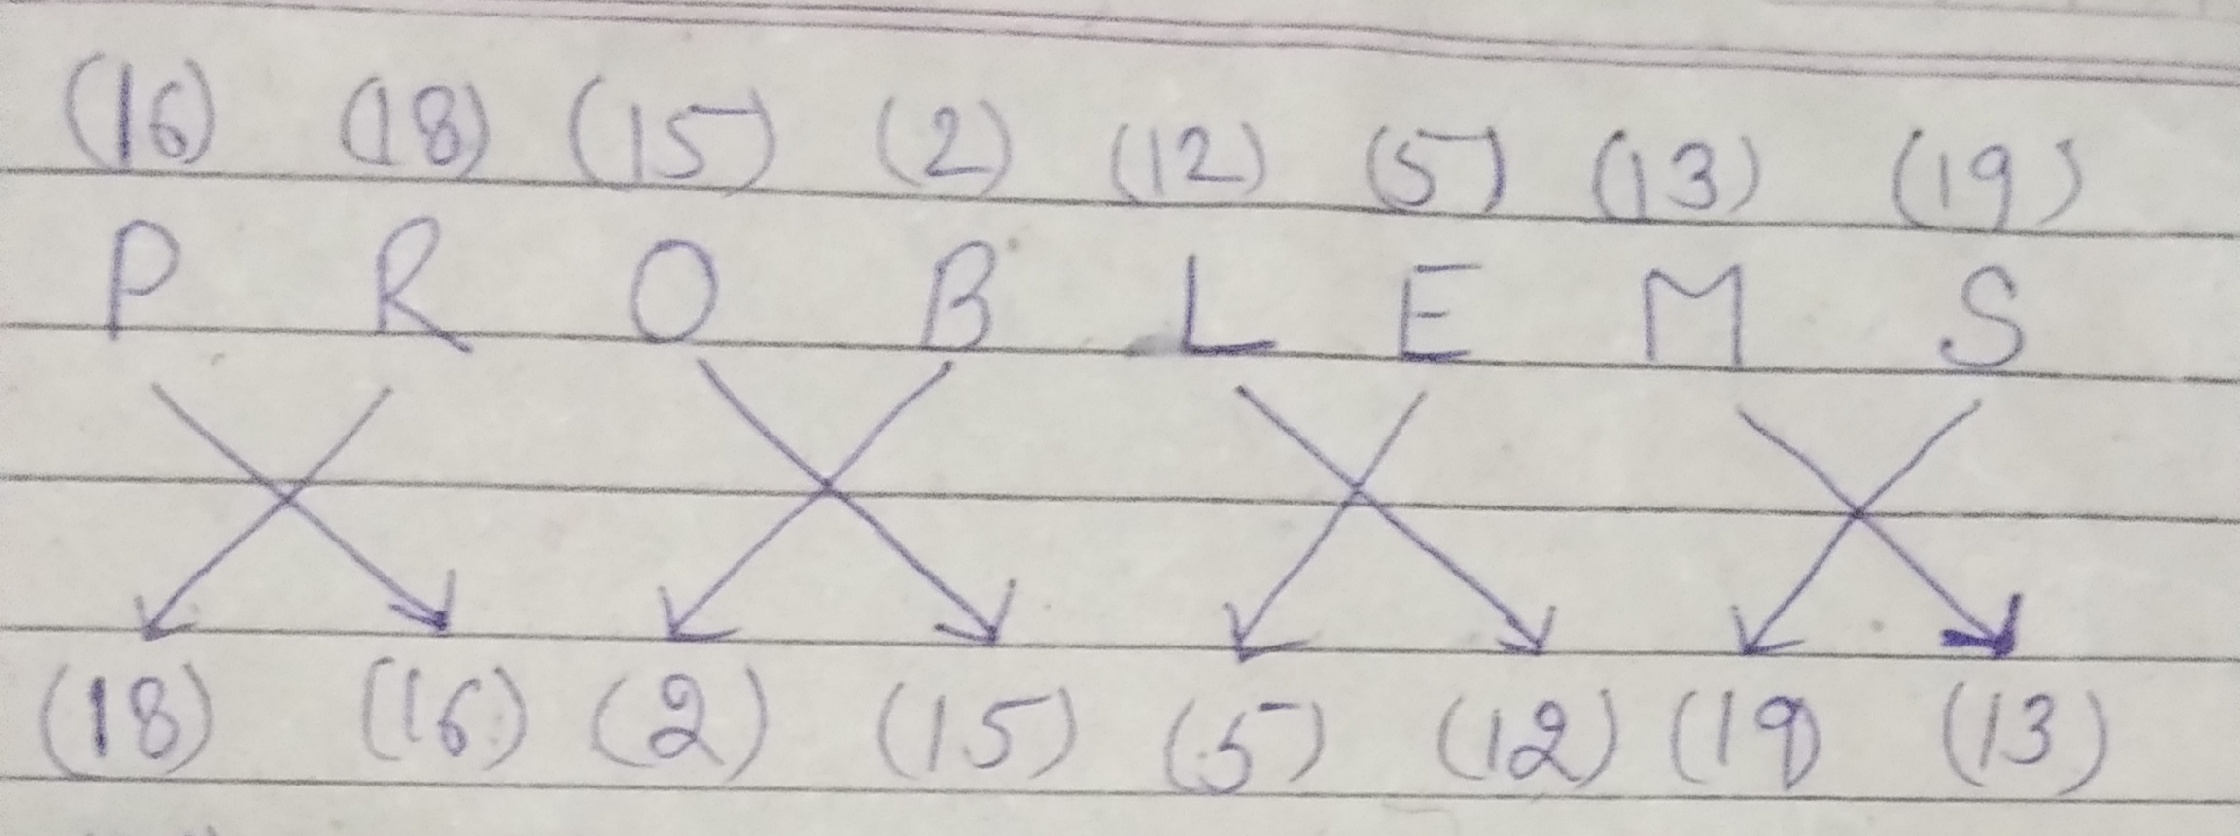 (16) (18) (15) (2) (12) (5) (13) (19)
P R O B L E M S
(18) (16) (2) (15) (5) (12) (19) (13)